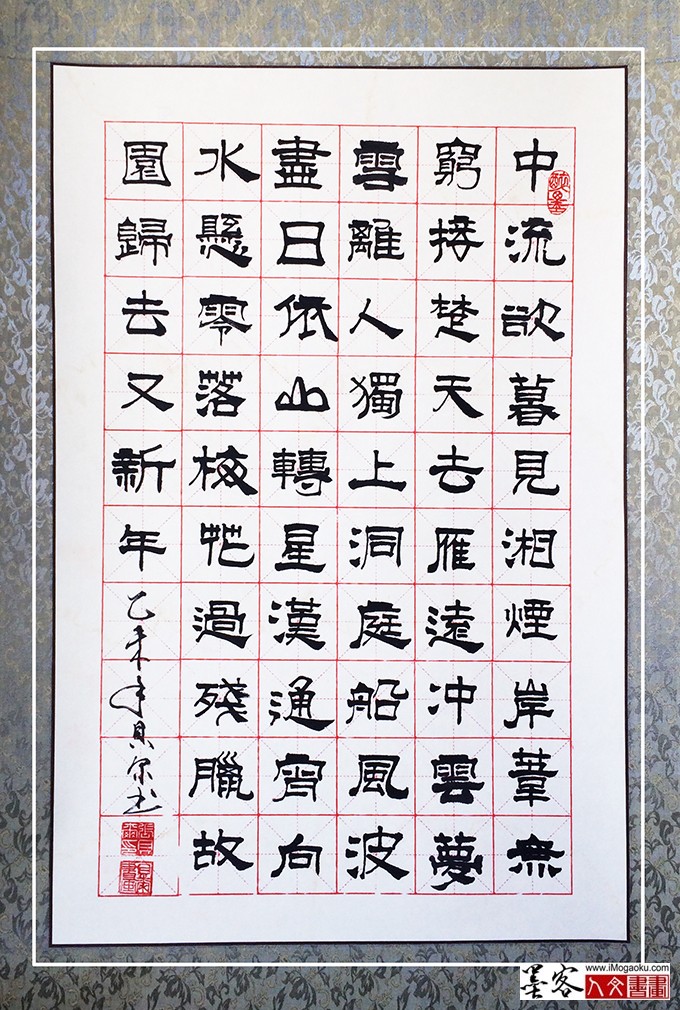 中流欲暮見湘煙岸葦無
窮接楚天去雁遠冲雲夢
雪離人獨上洞庭船風波
盡日依山轉星漢通宵向
水懸零落梅花過殘臘故
園歸去又新年
乙未年貝尔书
墨客
www.iMogaoku.com
人文書畫